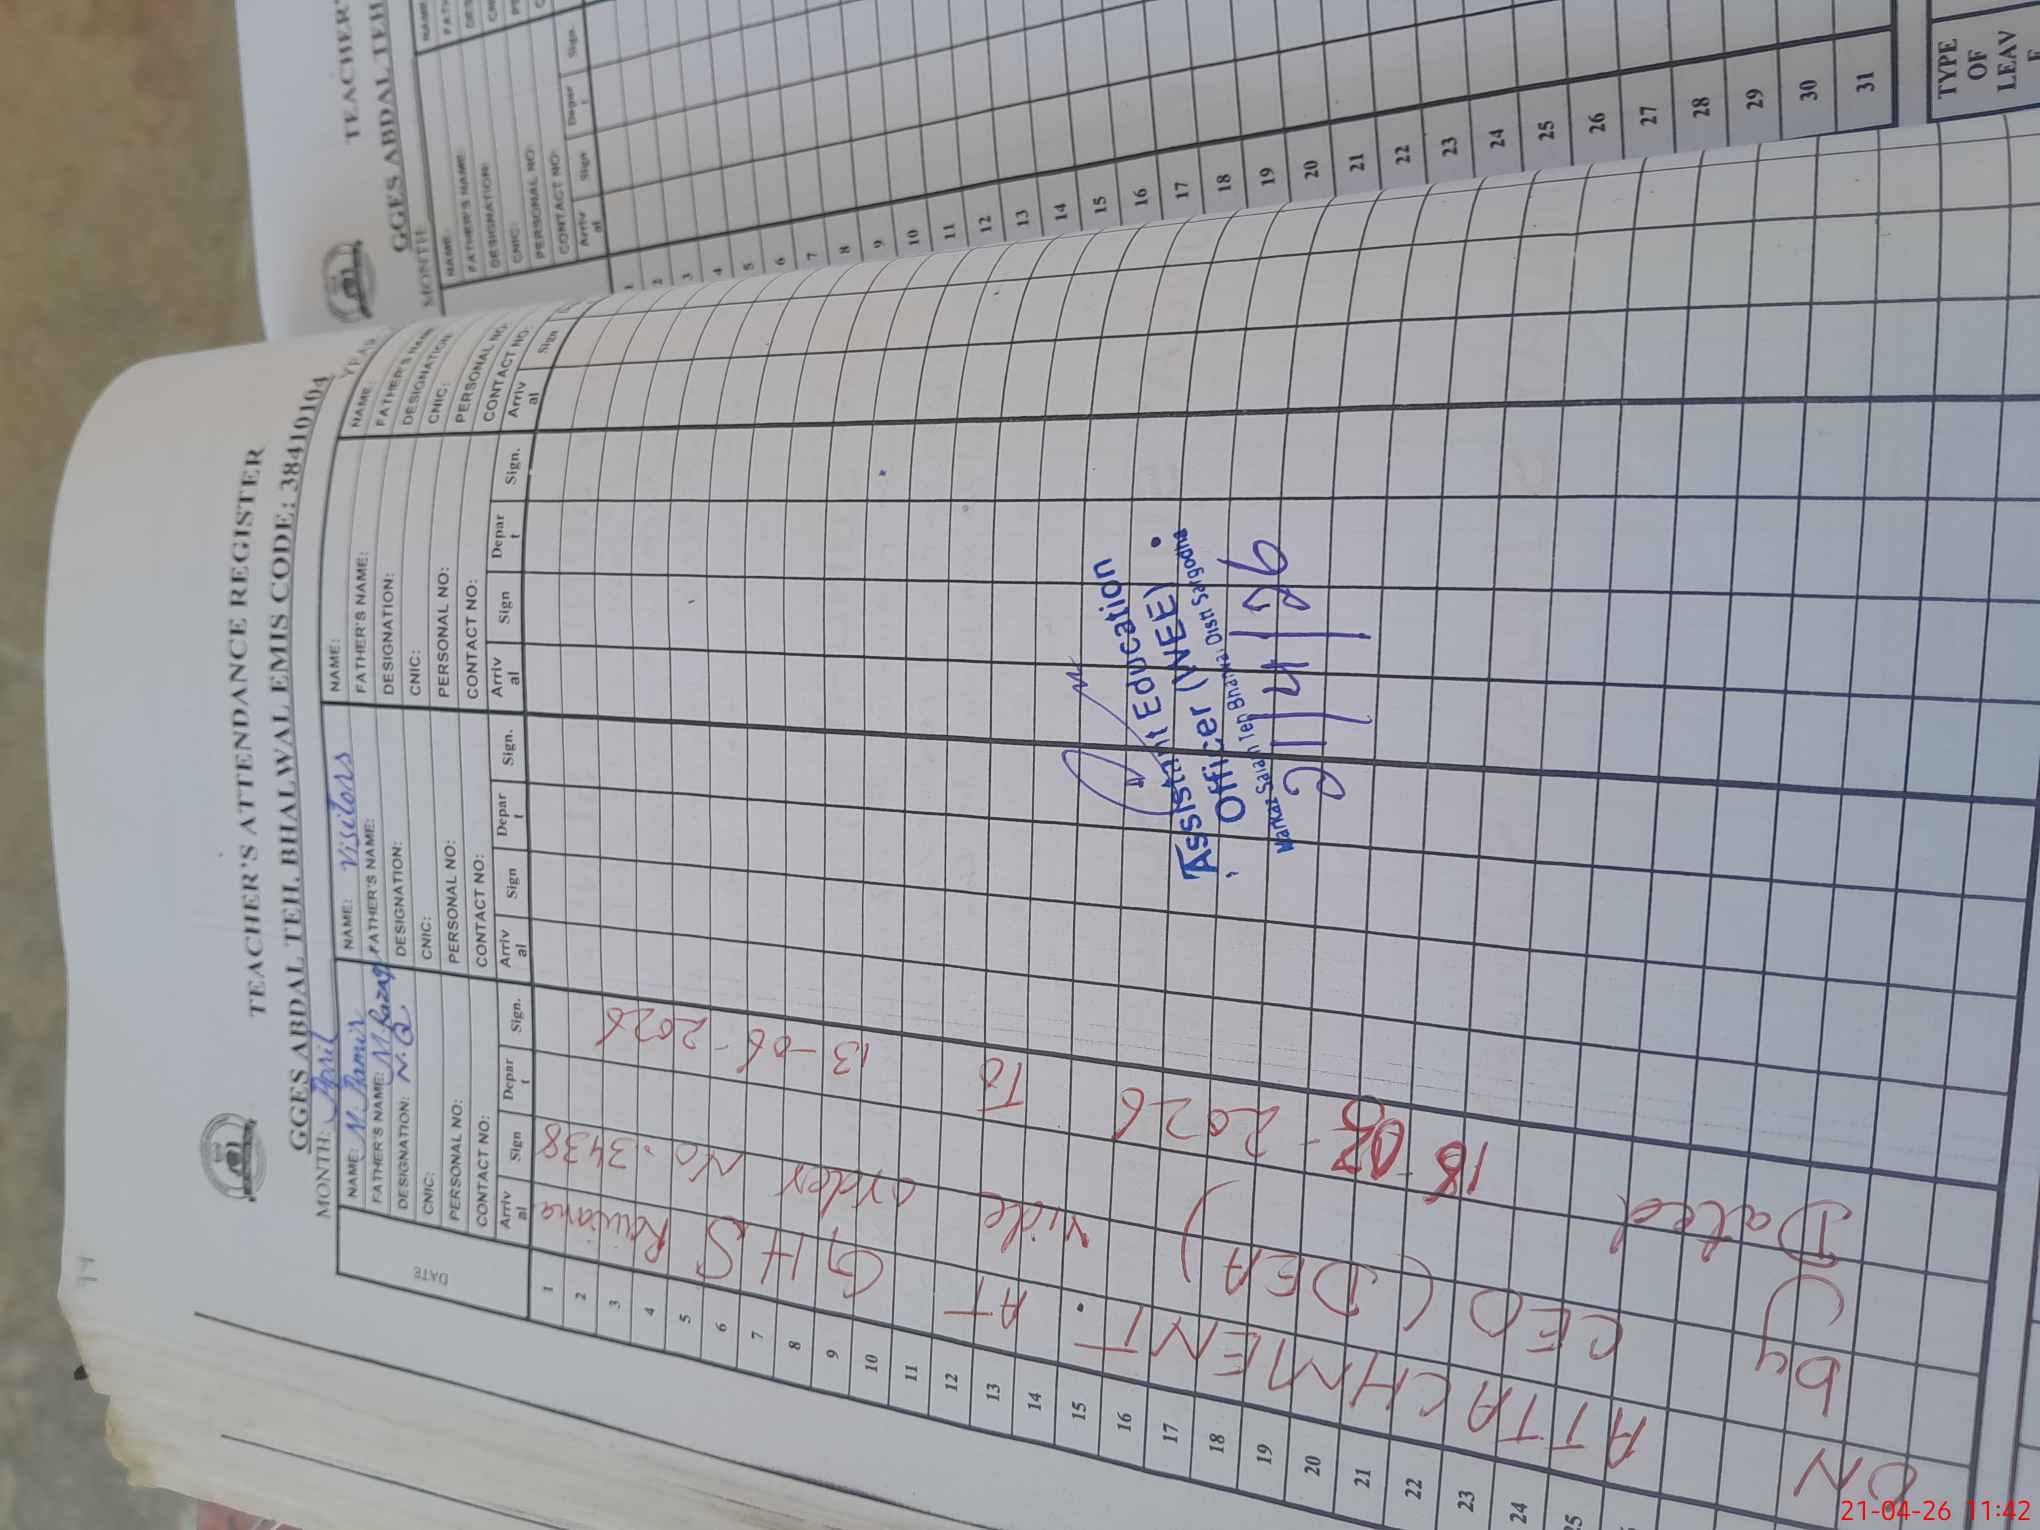 TEACHER'S ATTENDANCE REGISTER
GGES ABDAL TEHL BHALWAL EMIS CODE: 38410104
MONTH: April
YEAR
NAME: M. Ramiz
FATHER'S NAME: M. Razaq
DESIGNATION: N.Q
CNIC:
PERSONAL NO:
CONTACT NO:
NAME: Visitors
FATHER'S NAME:
DESIGNATION:
CNIC:
PERSONAL NO:
CONTACT NO:
NAME:
FATHER'S NAME:
DESIGNATION:
CNIC:
PERSONAL NO:
CONTACT NO:
NAME:
FATHER'S NAM
DESIGNATION
CNIC:
PERSONAL NO
CONTACT NO:
DATE
Arriv al Sign Depar t Sign. Arriv al Sign Depar t Sign. Arriv al Sign Depar t Sign. Arriv al Sign
1
2
3
4
5
6
7
8
9
10
11
12
13
14
15
16
17
18
19
20
21
22
23
24
25
ON ATTACHMENT. AT GHS Rawana
by CEO (DEA) vide order No. 3438
Dated
2026 To 13-06-2026
Assistant Education
Officer (WEE)
Markaz Salam Teh Bhalwal Distt Sargodha
21/4/26
TEACHER'
GGES ABDAL TEH
MONTH
NAME:
FATHER'S NAME:
DESIGNATION:
CNIC:
PERSONAL NO:
CONTACT NO:
Arriv al Sign Depar t Sign.
1
2
3
4
5
6
7
8
9
10
11
12
13
14
15
16
17
18
19
20
21
22
23
24
25
26
27
28
29
30
31
TYPE
OF
LEAV
E
21-04-26 11:42